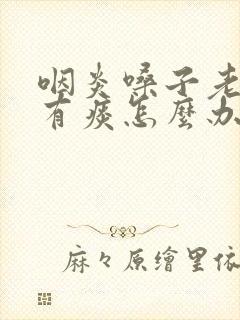 咽炎嗓子老
有痰怎麼办
麻々原繪里依